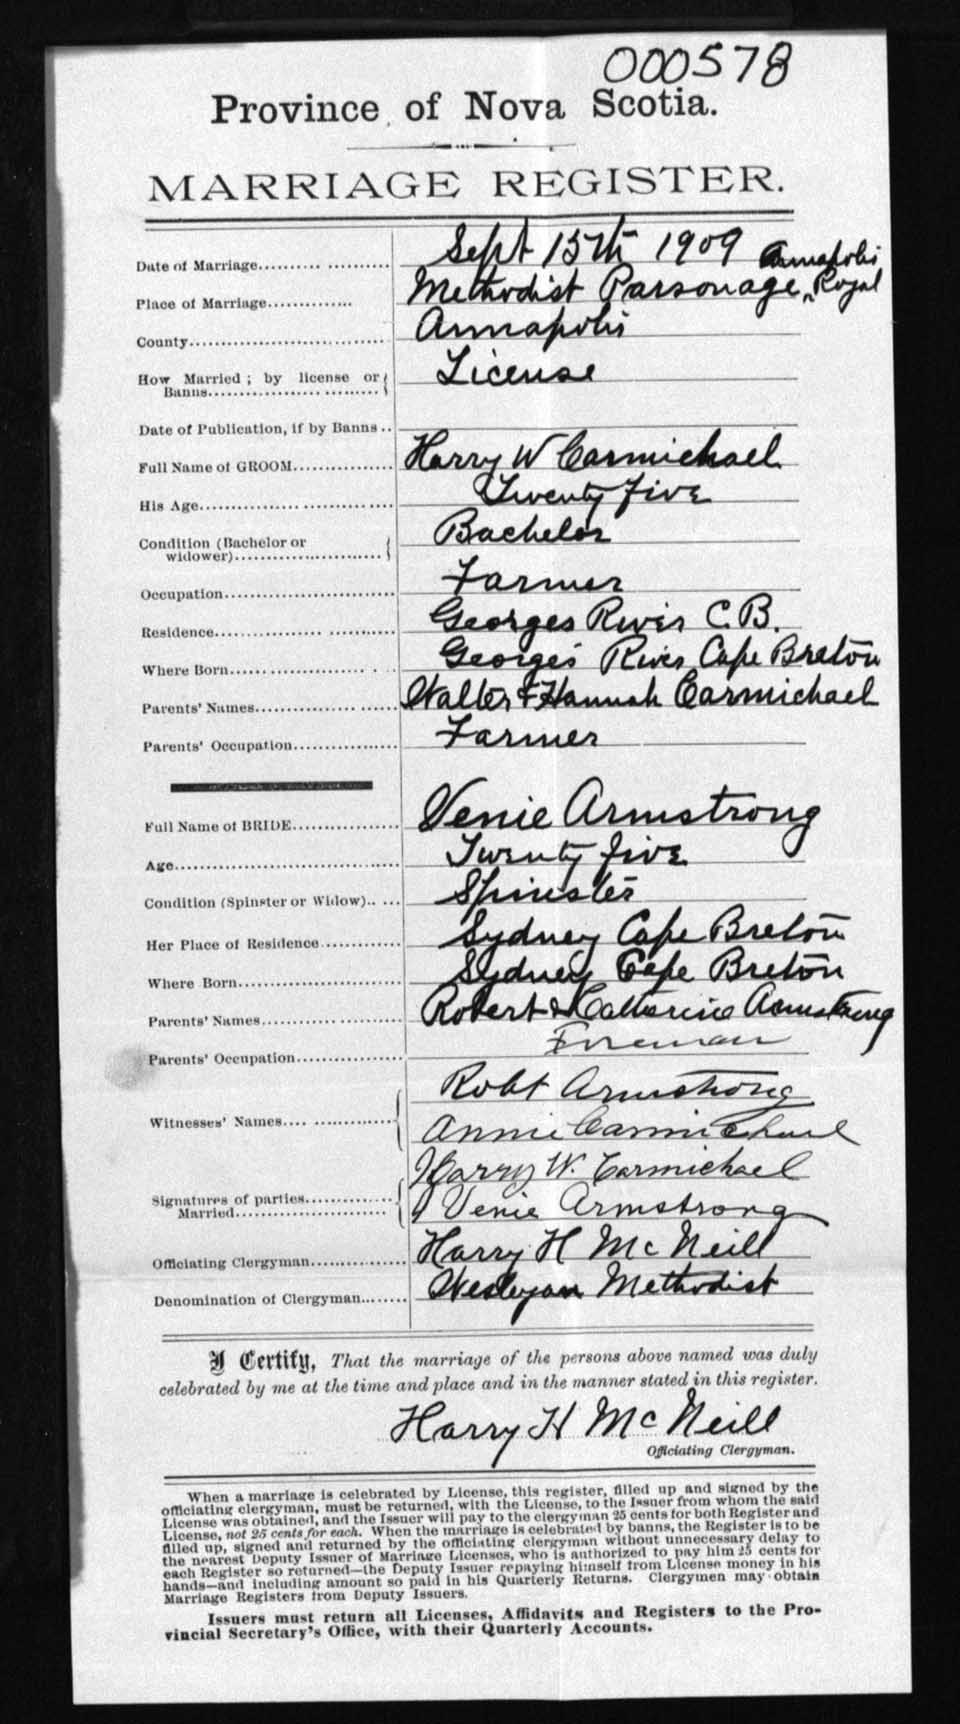 000578
Province of Nova Scotia.
MARRIAGE REGISTER.
Date of Marriage.......... Sept 15th 1909
Place of Marriage.............. Methodist Parsonage, Annapolis Royal
County.............................. Annapolis
How Married ; by license or Banns.............................. License
Date of Publication, if by Banns ..
Full Name of GROOM................ Harry W Carmichael
His Age.............................. Twenty five
Condition (Bachelor or widower)........................ Bachelor
Occupation........................... Farmer
Residence........................... Georges River C.B.
Where Born........................ Georges River Cape Breton
Parents' Names..................... Walter & Hannah Carmichael
Parents' Occupation................. Farmer
Full Name of BRIDE................. Venie Armstrong
Age................................... Twenty five
Condition (Spinster or Widow)..... Spinster
Her Place of Residence............. Sydney Cape Breton
Where Born......................... Sydney Cape Breton
Parents' Names..................... Robert & Catherine Armstrong
Parents' Occupation................. Foreman
Witnesses' Names.................. Robt Armstrong
Annie Carmichael
Signatures of parties Married........................ Harry W. Carmichael
Venie Armstrong
Officiating Clergyman.............. Harry H McNeill
Denomination of Clergyman........ Wesleyan Methodist
I Certify, That the marriage of the persons above named was duly
celebrated by me at the time and place and in the manner stated in this register.
Harry H McNeill
Officiating Clergyman.
When a marriage is celebrated by License, this register, filled up and signed by the
officiating clergyman, must be returned, with the License, to the Issuer from whom the said
License was obtained, and the Issuer will pay to the clergyman 25 cents for both Register and
License, not 25 cents for each. When the marriage is celebrated by banns, the Register is to be
filled up, signed and returned by the officiating clergyman without unnecessary delay to
the nearest Deputy Issuer of Marriage Licenses, who is authorized to pay him 25 cents for
each Register so returned—the Deputy Issuer repaying himself from License money in his
hands—and including amount so paid in his Quarterly Returns. Clergymen may obtain
Marriage Registers from Deputy Issuers.
Issuers must return all Licenses, Affidavits and Registers to the Pro-
vincial Secretary's Office, with their Quarterly Accounts.